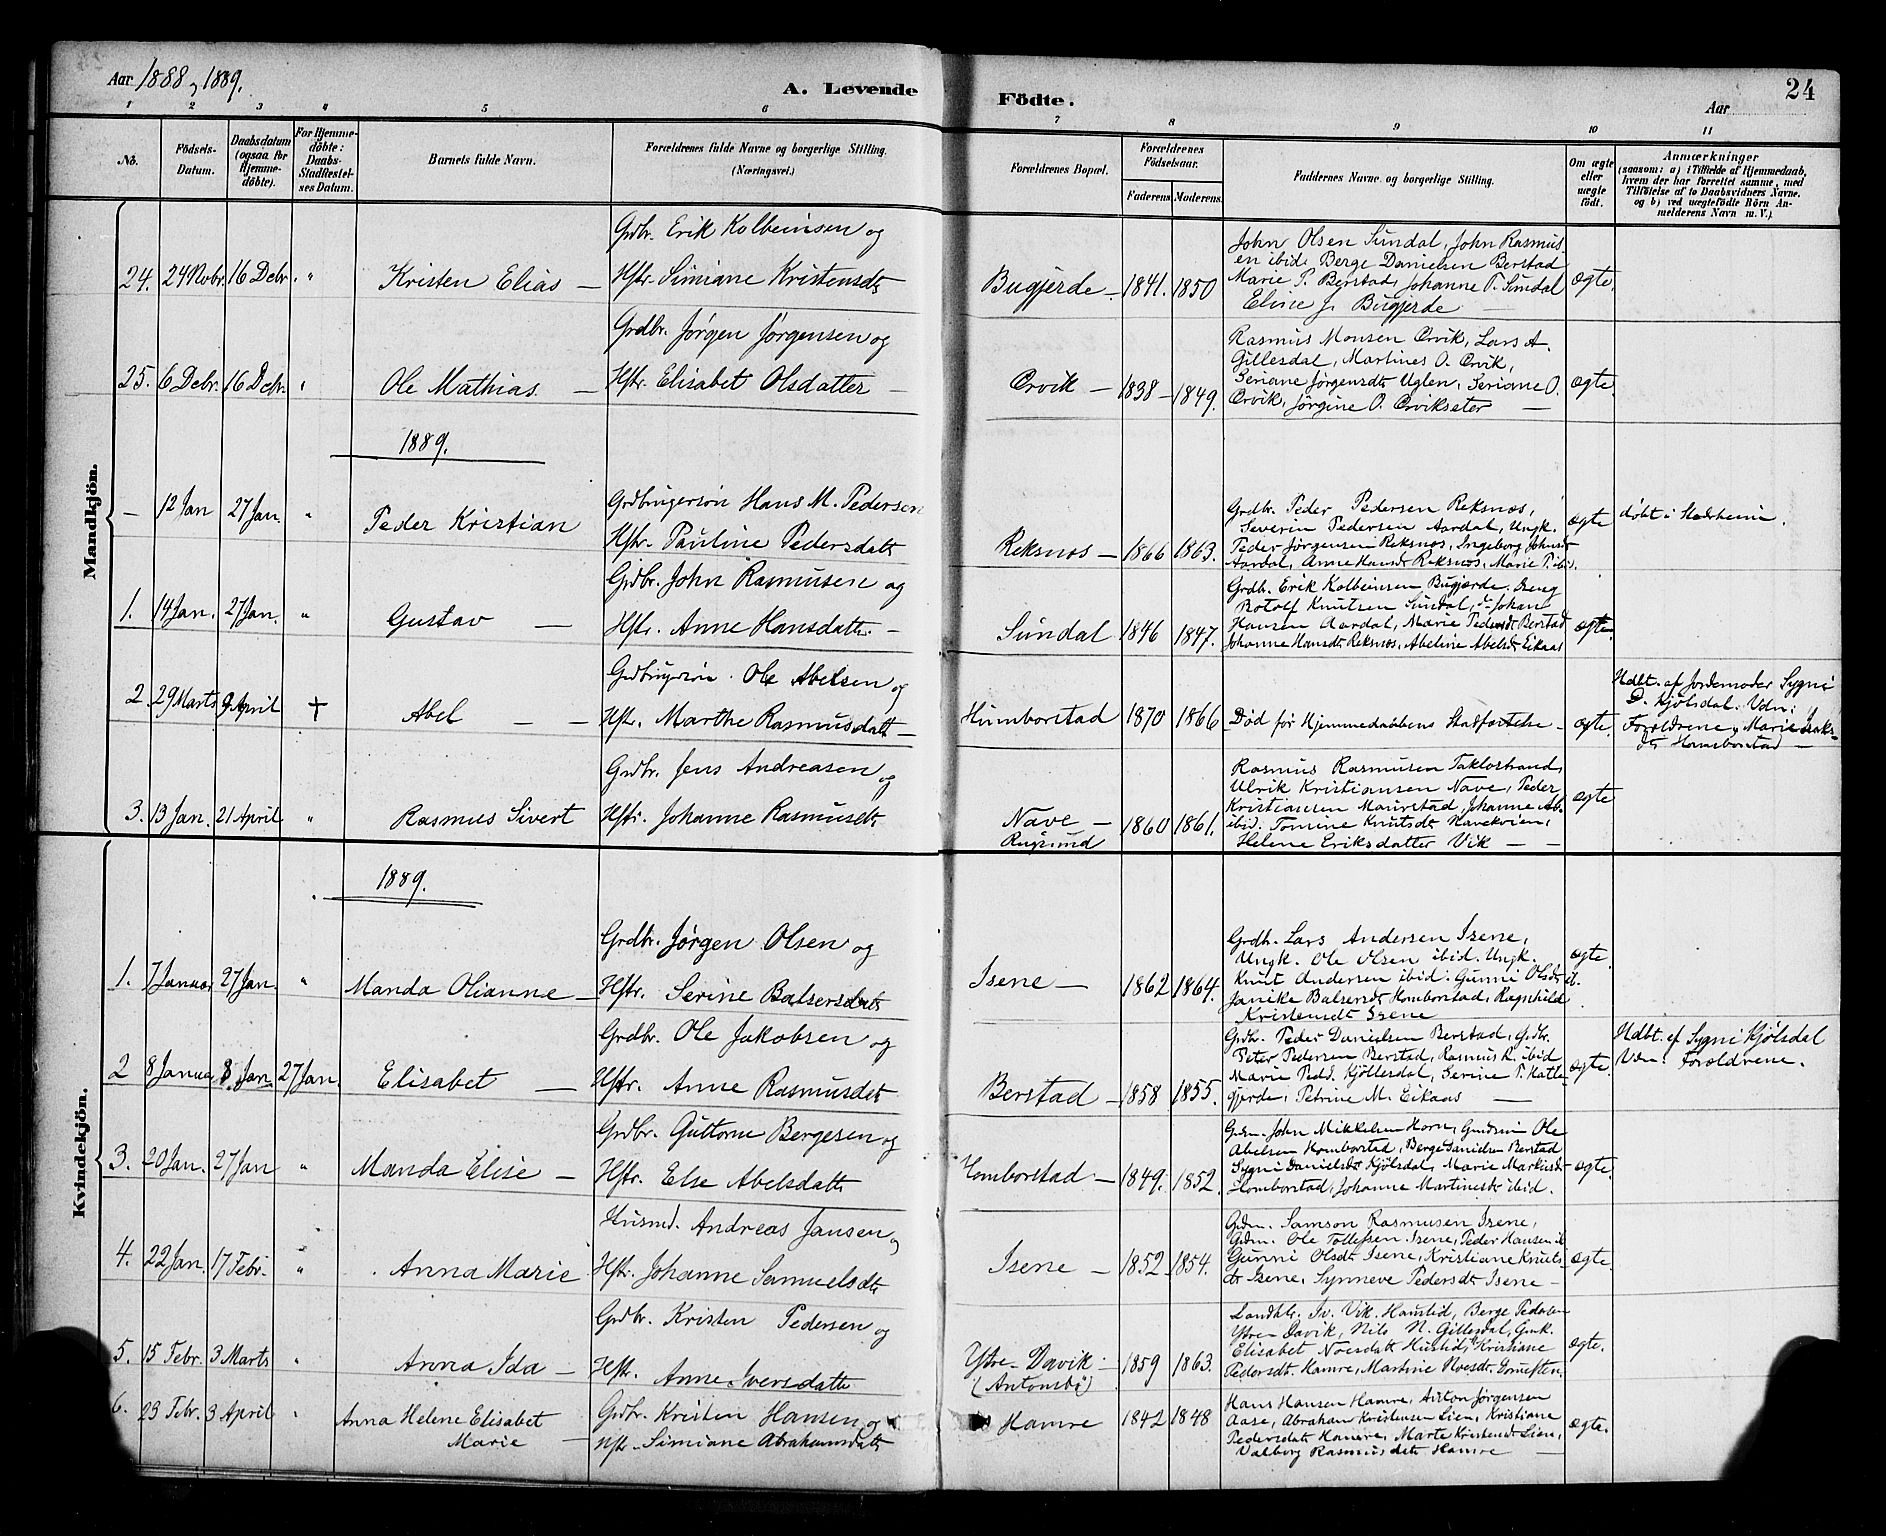 Aar 1888, 1889.
A. Levende Födte.
Aar
24
1 2 3 4 5 6 7 8 9 10 11
No.
Födsels-Datum.
Daabsdatum (ogsaa for Hjemme-döbte).
For Hjemme-döbte: Daabs-Stadfæstel-ses Datum.
Barnets fulde Navn.
Forældrenes fulde Navne og borgerlige Stilling. (Næringsvei.)
Forældrenes Bopæl.
Forældrenes Födselsaar.
Faderens. Moderens.
Faddernes Navne og borgerlige Stilling.
Om ægte eller uægte födt.
Anmærkninger
(saasom: a) i Tilfælde af Hjemmedaab,
hvem der har forrettet samme, med
Tilföielse af to Daabsvidners Navne.
og b) ved uægtefödte Börn An-
melderens Navn m. V.).
Mandkjön.
Grdbr. Erik Kolbeinsen og
24. 24 Novbr. 16 Debr. " Kristen Elias — Hstr. Simiane Kristensdt
Bugjerde. 1841. 1850
John Olsen Sundal, John Rasmus
en ibid. Berge Danielsen Berstad
Marie P. Berstad, Johanne T. Sundal
Eline J. Bugjerde —
ægte.
Grdbr. Jørgen Jørgensen og
25. 6 Debr. 16 Debr. " Ole Mathias. — Hstr. Elisabet Olsdatter —
Ørvik — 1838 — 1849.
Rasmus Monsen Ørvik, Lars A.
Gillesdal, Martines O. Ørvik,
Seriane Jørgensdt Uglen, Seriane O.
Ørvik, Jørgine O. Ørvikseter —
ægte.
1889.
Grdbrugersøn Hans M. Pedersen
— 12 Jan 27 Jan. " Peder Kristian Hstr. Pauline Pedersdatt
Reksnos — 1866 1863.
Grdbr. Peder Pedersen Reksnos,
Severin Pedersen Aardal, Ungk.
Peder Jørgensen Reksnos, Ingeborg Johnsdt
Aardal, Anne Hansdt Reksnos, Marie P. ibi.
ægte døbt i
Grdbr. John Rasmusen og
1. 14 Jan. 27 Jan. " Gustav — Hstr. Anne Hansdatt. —
Sundal 1846 1847.
Grdb. Erik Kolbeinsen Bugjærde.
Botolf Knutsen Sundal, Johan
Hansen Aardal, Marie Pedersdt Berstad
Johanne Hansdt Reksnos, Abeline Abelsdt Eikaas
ægte.
Grdbrugersøn. Ole Abelsen og
2. 29 Marts 9 April † Abel — — Hstr. Marthe Rasmusdatt —
Humborstad 1870 1866
Død før Hjemmedaabens Stadfæstelse —
ægte.
Hdbt. af Jordemoder Sygni
D. Kjølsdal. Vdn:
Forældrene, Marie Isaks-
dt Homborstad —
Grdbr. Jens Andreasen og
3. 13 Jan. 21 April " Rasmus Sivert Hstr. Johanne Rasmusdt
Nave —
Rugsund
1860 1861.
Rasmus Rasmusen Taklostrand,
Ulrik Kristiansen Nave, Peder
Kristiansen Maurstad, Johanne Ab.
ibid. Tomine Knutsdt Navekvien,
Helene Eriksdatter Vik — —
ægte
Kvindekjön.
1889.
Grdbr. Jørgen Olsen og
1. 7 Januar 27 Jan. " Manda Olianne — Hstr. Serine Balsersdatt
Isene — 1862 1864.
Grdb. Lars Andersen Isene,
Ungk. Ole Olsen ibid. Ungk.
Knut Andersen ibid. Gunni Olsdt ib.
Janike Balsersdt Homborstad, Ragnhild
Kristensdt Isene
ægte.
Grdbr. Ole Jakobsen og
2 8 Januar 8 Jan. 27 Jan. Elisabet — Hstr. Anne Rasmusdt
Berstad — 1858 1855.
Grdbr. Peder Danielsen Berstad, Grdbr.
Peter Pedersen Berstad, Rasmus R. ibid
Marie Pedd. Kjöllesdal, Serine P. Hatte-
gjerde, Petrine M. Eikaas —
ægte.
Hdbt. af Sygni Kjølsdal
Vdn: Forældrene.
Grdbr. Guttorm Bergesen og
3. 20 Jan. 27 Jan " Manda Elise — Hstr. Else Abelsdatt
Homborstad — 1849. 1852.
Grdm. John Mikkelsen Horn, Grdmsøn Ole
Abelsen Homborstad, Berge Danielsen Berstad
Sygni Danielsdt Kjølsdal, Marie Markusdt
Homborstad, Johanne Martinesdt ibid.
ægte.
Husmd. Andreas Jansen og
4. 22 Jan. 17 Febr. " Anna Marie Hstr. Johanne Samuelsdt
Isene — 1852 1854.
Grdm. Samson Rasmusen Isene,
Grdm. Ole Tollefsen Isene, Peder Hansen ib
Gunni Olsdt Isene, Kristiane Knuts-
dt Isene, Synneve Pedersdt Isene —
ægte.
Grdbr. Kristen Pedersen og
5. 15 Febr. 3 Marts " Anna Ida — Hstr. Anne Iversdatt
Ytre-Davik —
(Antonsbø)
1859 1863.
Landhl. Iv. Vik. Haustid, Berge Pedersen
Ytre Davik, Nils N. Gillesdal, Gmk.
Elisabet Noesdt Hustid, Kristiane
Pedersdt. Hamre, Martine Noesdt
ægte.
Grdbr. Kristen Hansen og
6. 23 Febr. 3 April " Anna Helene Elisabet
Marie — Hstr. Simiane Abrahamsdatt
Hamre 1842 1848
Hans Hansen Hamre, Anton Jørgensen
Aase, Abraham Kristensen Lien, Kristiane
Pedersdatt Hamre, Marte Kristensdt Lien,
Valborg Rasmusdatt Hamre —
ægte.